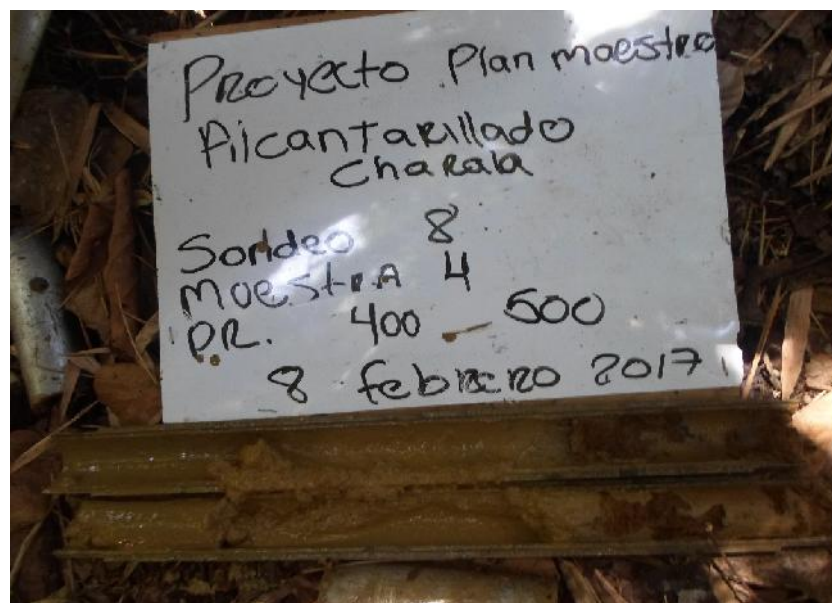 Proyecto Plan maestro
Alcantarillado
Charala
Sondeo 8
Muestra 4
PR. 400 - 500
8 febrero 2017